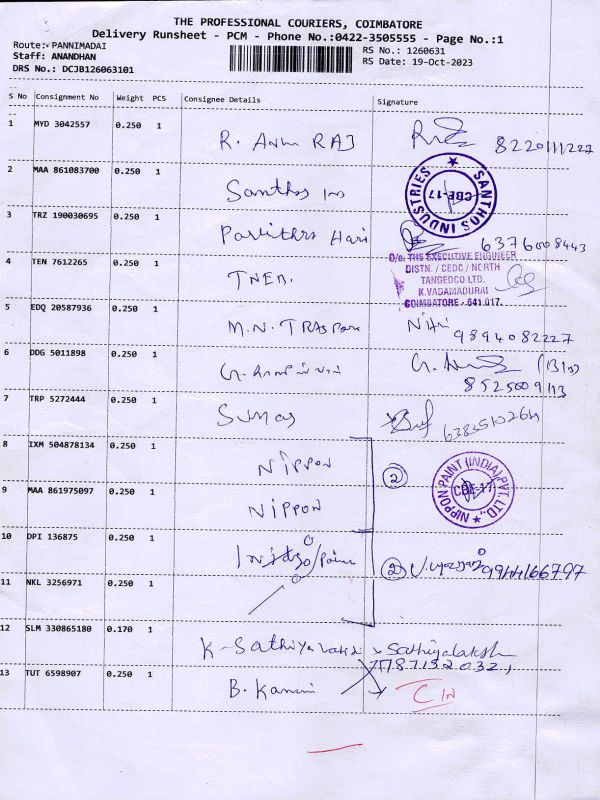 THE PROFESSIONAL COURIERS, COIMBATORE
Delivery Runsheet - PCM - Phone No.:0422-3505555 - Page No.:1
Route: PANNIMADAI
Staff: ANANDHAN
DRS No.: DCJB126063101
RS No.: 1260631
RS Date: 19-Oct-2023
S No Consignment No Weight PCS Consignee Details Signature
1 MYD 3042557 0.250 1 R. Arun RAJ 8220111227
2 MAA 861083700 0.250 1 Santhos Ins SANTHOS INDUSTRIES CBE-17
3 TRZ 190030695 0.250 1 Pavithra Hari
4 TEN 7612265 0.250 1 TNEB.
O/o. THE EXECUTIVE ENGINEER
DISTN. / CEDC / NORTH
TANGEDCO LTD.
K.VADAMADURAI
COIMBATORE - 641 017.
5 EDQ 20587936 0.250 1 M.N. 9894082227
6 DDG 5011898 0.250 1
7 TRP 5272444 0.250 1
8 IXM 504878134 0.250 1 NIPPON
9 MAA 861975097 0.250 1 NIPPON 2 NIPPON PAINT (INDIA) PVT. LTD., CBE-17
10 DPI 136875 0.250 1 Indigo/Paint 2 9944166797
11 NKL 3256971 0.250 1
12 SLM 330865180 0.170 1 K-Sathiya
13 TUT 6598907 0.250 1 B. Kannin